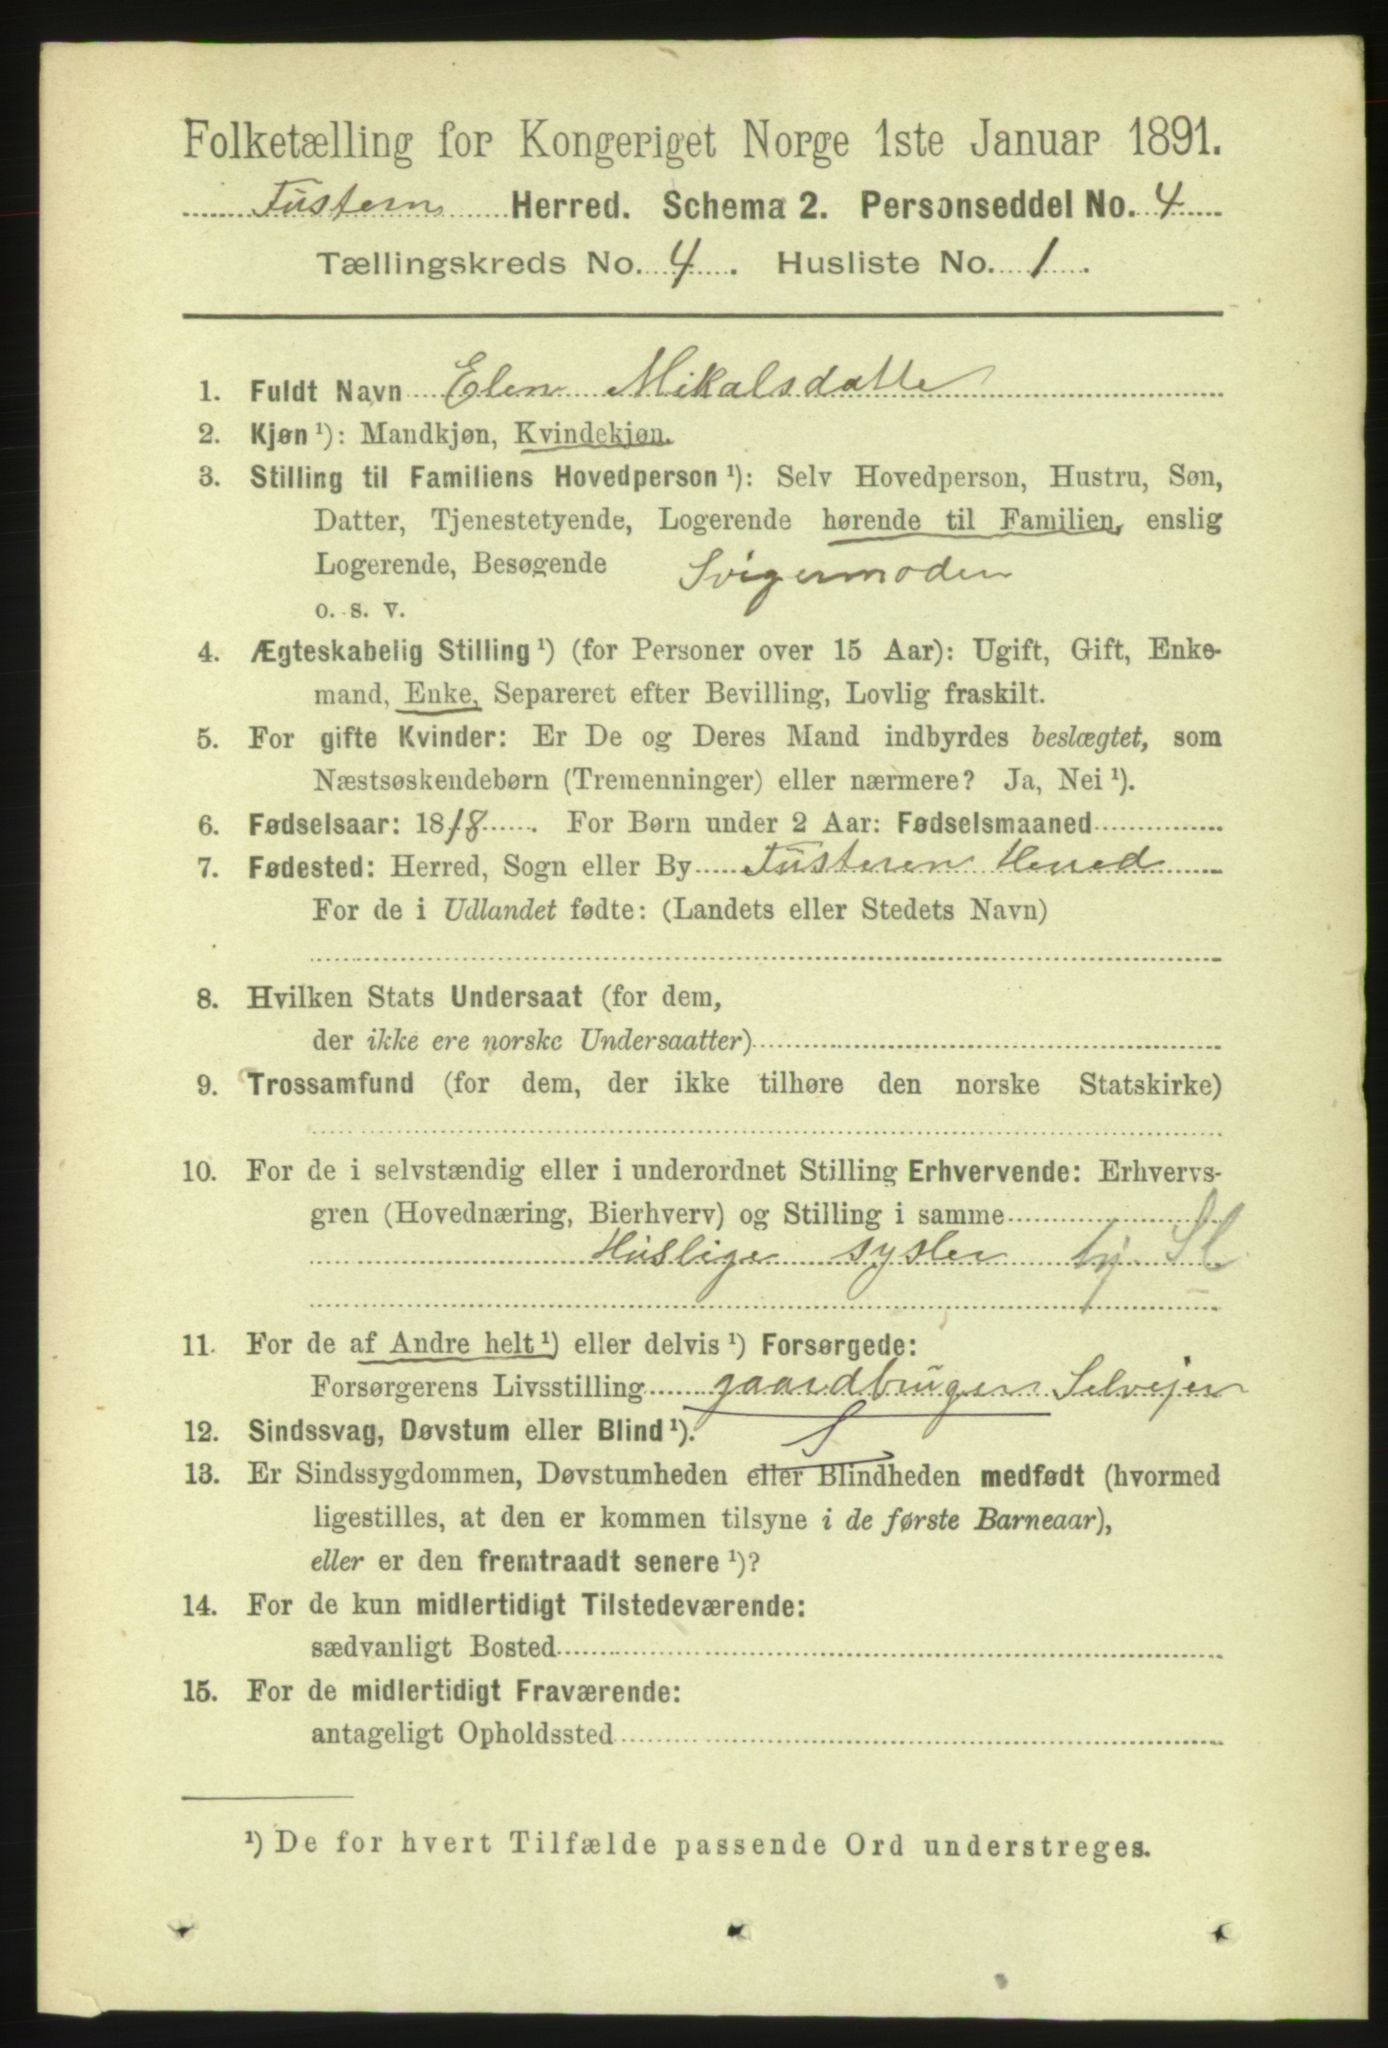 Folketælling for Kongeriget Norge 1ste Januar 1891.
Tustern Herred. Schema 2. Personseddel No. 4
Tællingskreds No. 4. Husliste No. 1.
1. Fuldt Navn Elen Mikalsdatte
2. Kjøn ¹): Mandkjøn, Kvindekjøn.
3. Stilling til Familiens Hovedperson ¹): Selv Hovedperson, Hustru, Søn,
Datter, Tjenestetyende, Logerende hørende til Familien, enslig
Logerende, Besøgende Svigermoder
o. s. v.
4. Ægteskabelig Stilling ¹) (for Personer over 15 Aar): Ugift, Gift, Enke-
mand, Enke, Separeret efter Bevilling, Lovlig fraskilt.
5. For gifte Kvinder: Er De og Deres Mand indbyrdes beslægtet, som
Næstsøskendebørn (Tremenninger) eller nærmere? Ja, Nei ¹).
6. Fødselsaar: 1818. For Børn under 2 Aar: Fødselsmaaned
7. Fødested: Herred, Sogn eller By Tusteren Herred
For de i Udlandet fødte: (Landets eller Stedets Navn)
8. Hvilken Stats Undersaat (for dem,
der ikke ere norske Undersaatter)
9. Trossamfund (for dem, der ikke tilhøre den norske Statskirke)
10. For de i selvstændig eller i underordnet Stilling Erhvervende: Erhvervs-
gren (Hovednæring, Bierhverv) og Stilling i samme
Huslige sysler tj Sl
11. For de af Andre helt ¹) eller delvis ¹) Forsørgede:
Forsørgerens Livsstilling gaardbruger Selvejer
12. Sindssvag, Døvstum eller Blind ¹). S
13. Er Sindssygdommen, Døvstumheden eller Blindheden medfødt (hvormed
ligestilles, at den er kommen tilsyne i de første Barneaar),
eller er den fremtraadt senere ¹)?
14. For de kun midlertidigt Tilstedeværende:
sædvanligt Bosted
15. For de midlertidigt Fraværende:
antageligt Opholdssted
¹) De for hvert Tilfælde passende Ord understreges.